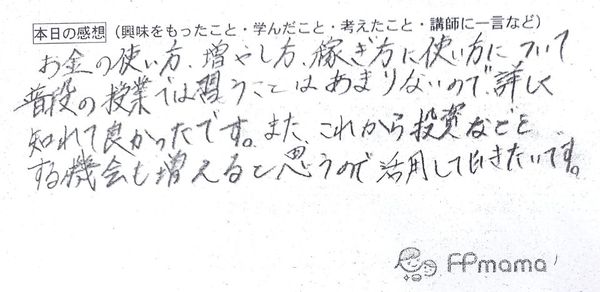 本日の感想（興味をもったこと・学んだこと・考えたこと・講師に一言など）
お金の使い方、増やし方、稼ぎ方に使い方について
普段の授業では習うことはあまりないので、詳しく
知れて良かったです。また、これから投資などを
する機会も増えると思うので活用して行きたいです。
FPmama